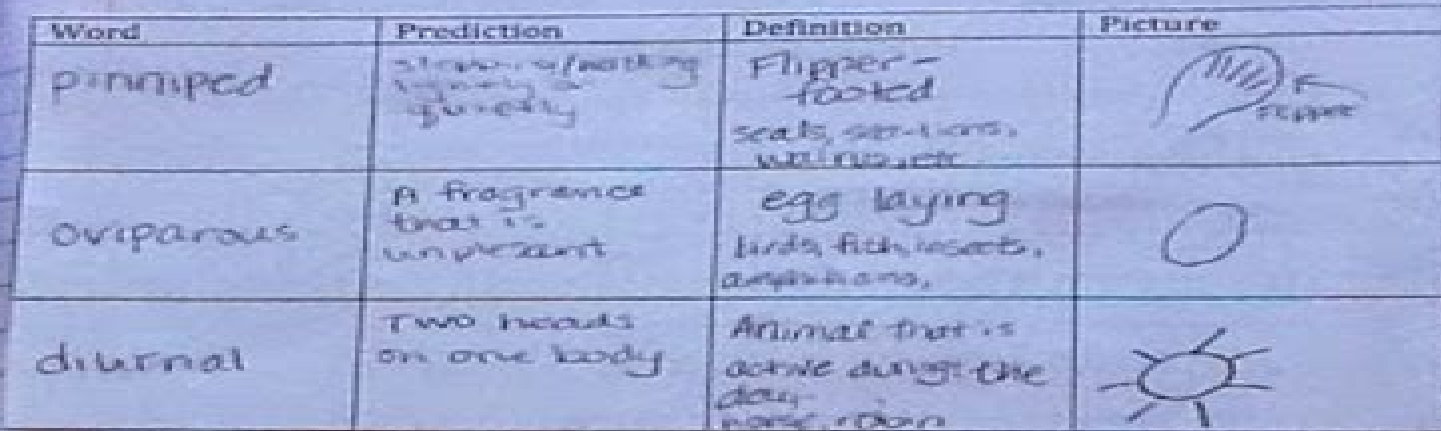 Word Prediction Definition Picture
pinniped
quietly
Flipper-
footed
seals, sea-lions,
walrus, etc
Flipper
oviparous
A fragrence
that is
unplesant
egg laying
birds, fish, insects,
diurnal
Two heads
on one body
Animal that is
active during the
day